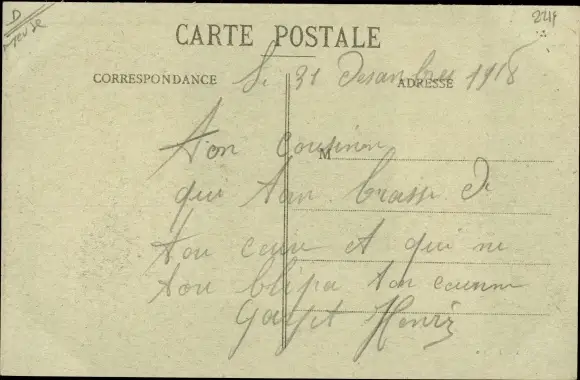 D
Meuse
224
CARTE POSTALE
CORRESPONDANCE
ADRESSE
Le 31 Desanbres 1918
Ton cousin
M
qui tan brasse de
ton cœur et qui ne
ton blipa ton cousin
Henri